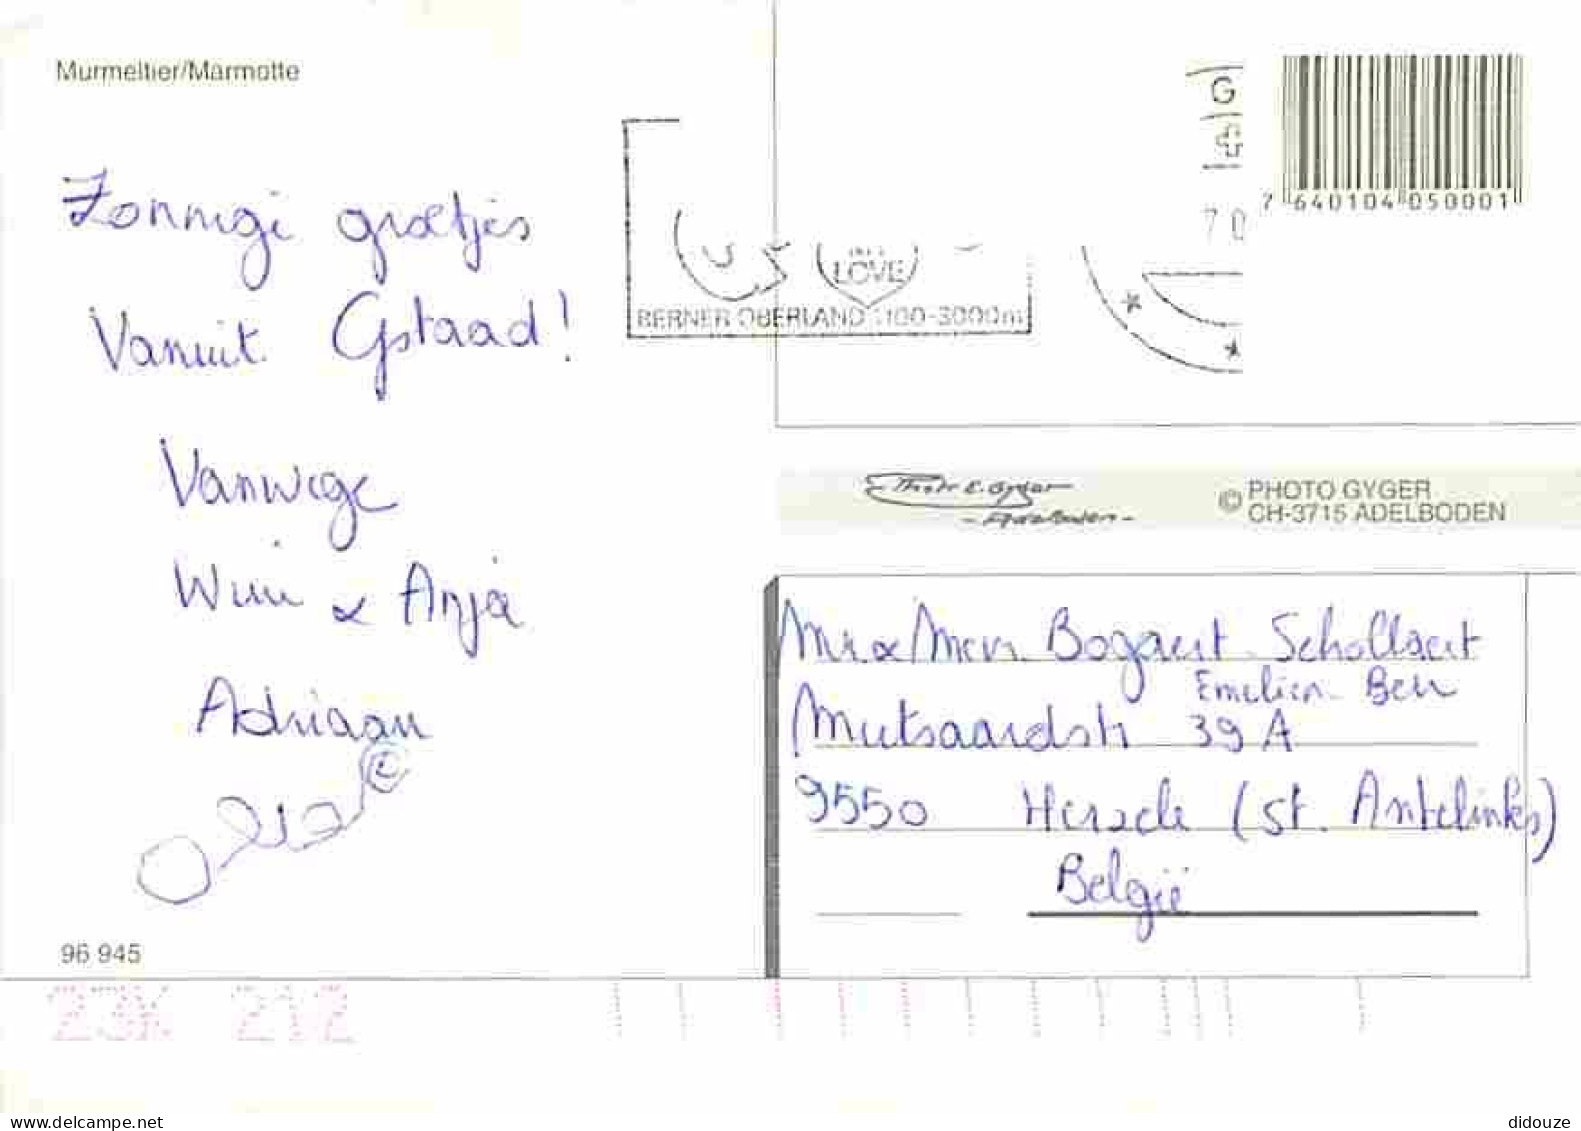 Murmeltier/Marmotte
Zonnige groetjes
Vanuit Gstaad!
Vanwege
Wim & Anja
Adriaan
96 945
LOVE
BERNER OBERLAND 1100-3000m
G
70
7 640104 050001
Photo E. Gyger
- Adelboden -
© PHOTO GYGER
CH-3715 ADELBODEN
Mr & Mevr. Bogaert - Schollaert
Emelien - Bert
Mutsaardstr 39 A
9550 Herzele (St. Antelinks)
België
23K 2Y2
www.delcampe.net
didouze